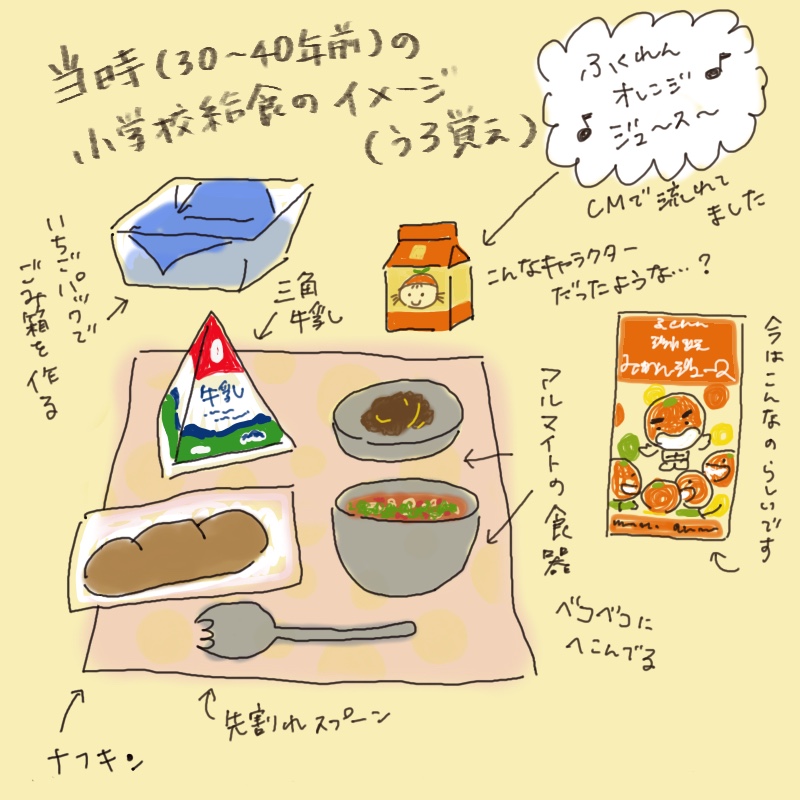 当時(30～40年前)の
小学校給食のイメージ
(うろ覚え)
ふくれん
オレンジ
ジュ～ス～
CMで流れて
ました
こんなキャラクター
だったような…?
いちごパックで
ごみ箱を作る
三角
牛乳
牛乳
アルマイトの食器
みかんジュース
今はこんなのらしいです
ベコベコに
へこんでる
先割れスプーン
ナフキン